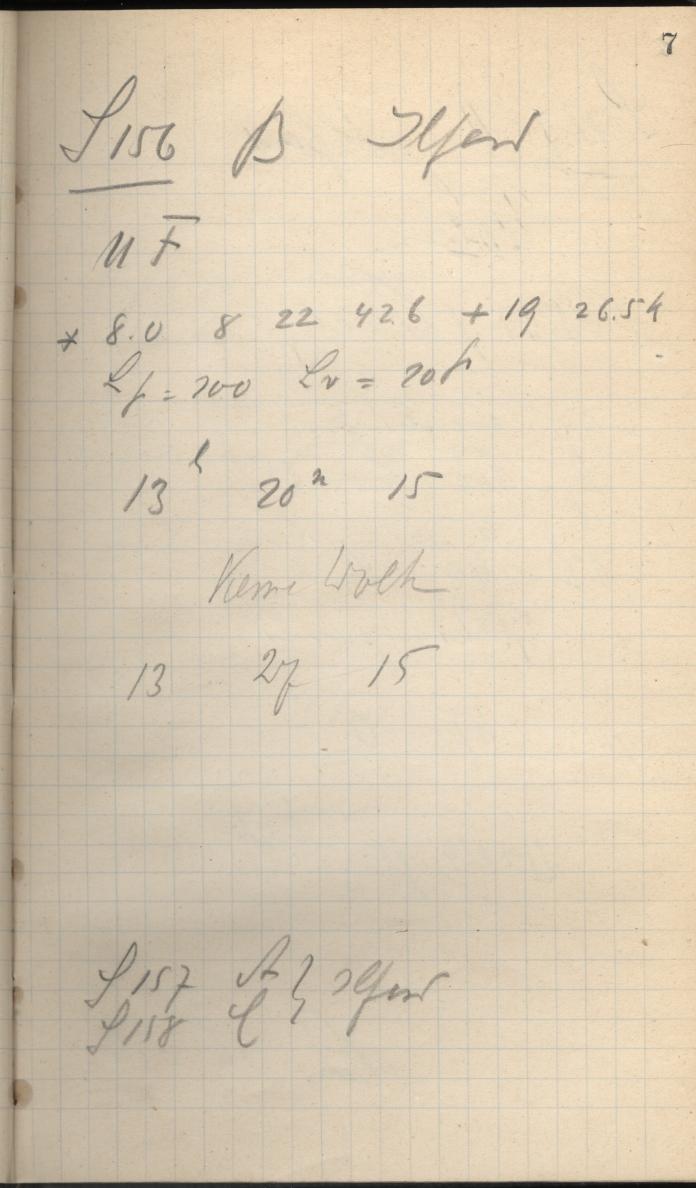 7
S 156 B Ilford
* 8.0 8 22 42.6 + 19 26.54
13 h 20 m 15
Keine Wolke
13 27 15
S 157 A } Ilford
S 158 C